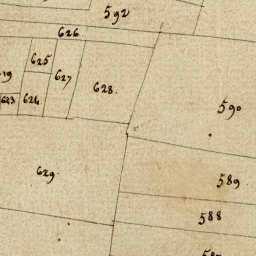 592
626
625
627
628.
623
624
590
629.
589
588